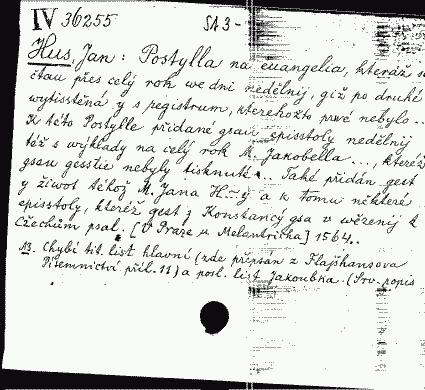 IV 36255 SA 3-
Hus, Jan: Postylla na euangelia, kteráž se
cžtau přes celý rok we dni nedělnij, giž po druhé
wytisstěná y s registrum, kterehožto prwé nebylo...
K této Postylle přidané gsau episstoly nedělnij
též s wýklady na celý rok M. Jakobella..., kteréž
gsau gesstie nebyly tisknuté... Také přidán gest
y žiwot téhož M. Jana H~y a k tomu některé
episstoly, kteréž gest z Konstancý gsa w wězenij k
Cžechům psal. [V Praze u Melantricha] 1564.
N3. Chybí tit. list hlavní (zde přepsán z Flajšhansova
Písemnictví příl. 11) a posl. list Jakoubka. (Srv. popis